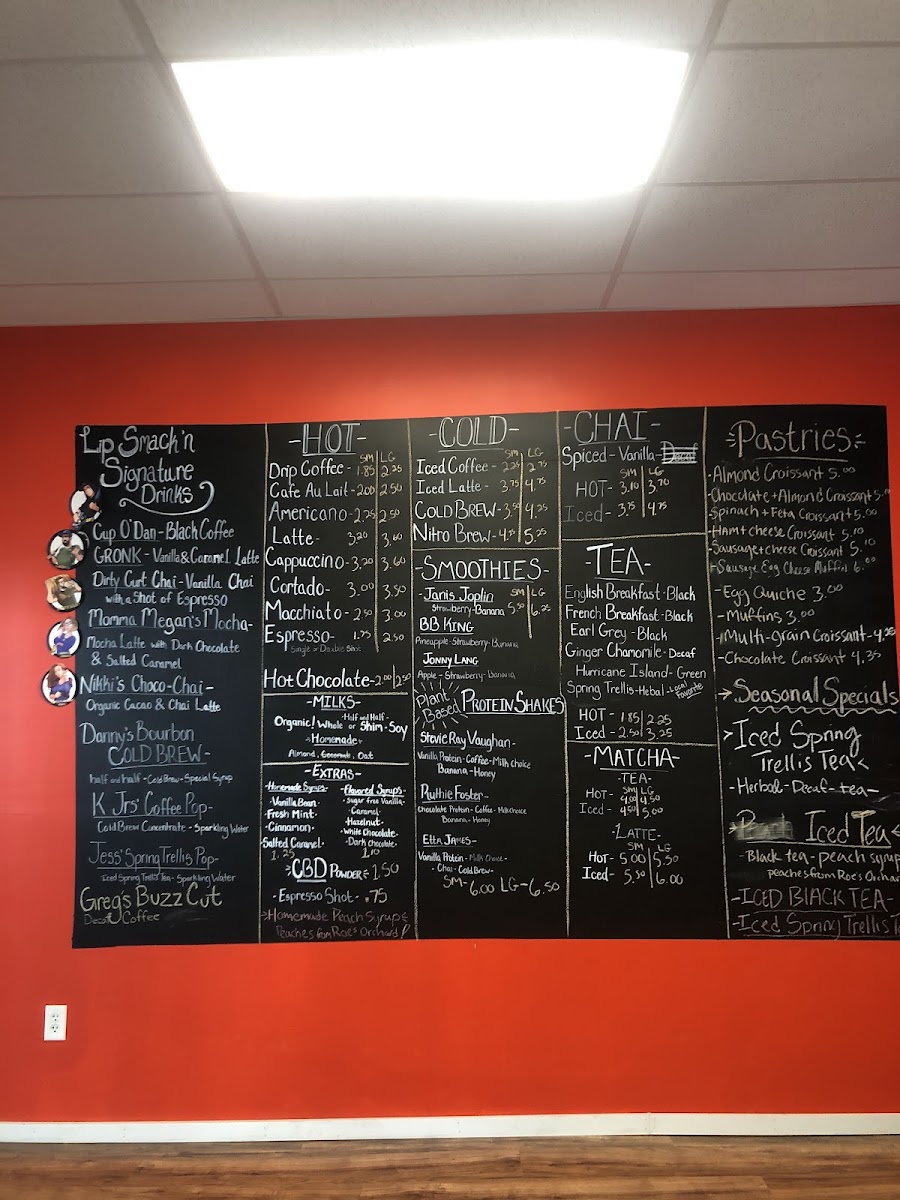 Lip Smack'n
Signature
Drinks
Cup O'Dan - Black Coffee
GRONK - Vanilla & Caramel Latte
Dirty Curt Chai - Vanilla Chai
with a Shot of Espresso
Momma Megan's Mocha -
Mocha Latte with Dark Chocolate
& Salted Caramel
Nikhi's Choco-Chai -
Organic Cacao & Chai Latte
Danny's Bourbon
COLD BREW -
half and half - Cold Brew - Special Syrup
K Jrs' Coffee Pop -
Cold Brew Concentrate - Sparkling Water
Jess' Spring Trellis Pop -
Iced Spring Trellis Tea - Sparkling Water
Greg's Buzz Cut
Decaf Coffee
-HOT-
SM LG
Drip Coffee - 1.85 2.25
Cafe Au Lait - 2.00 2.50
Americano - 2.25 2.50
Latte - 3.20 3.60
Cappuccino - 3.20 3.60
Cortado - 3.00 3.50
Macchiato - 2.50 3.00
Espresso - 1.75 2.50
Single or Double Shot
Hot Chocolate - 2.00 2.50
-MILKS-
Organic! Whole or Skim - Soy
Half and Half -
-Homemade-
Almond, Coconut, Oat
-EXTRAS-
-Homemade Syrups-
-Vanilla Bean-
-Fresh Mint-
-Cinnamon-
-Salted Caramel-
1.25
-Flavored Syrups-
-Sugar free Vanilla-
-Caramel-
-Hazelnut-
-White Chocolate-
-Dark Chocolate-
1.10
-CBD POWDER - 1.50
-Espresso Shot - .75
Homemade Peach Syrup &
Peaches from Roe's Orchard!
-COLD-
SM LG
Iced Coffee - 2.25 2.75
Iced Latte - 3.75 4.75
COLD BREW - 3.50 4.25
Nitro Brew - 4.75 5.25
-SMOOTHIES-
-Janis Joplin SM LG
Strawberry - Banana 5.50 6.25
BB KING
Pineapple - Strawberry - Banana
JONNY LANG
Apple - Strawberry - Banana
Plant Based PROTEIN SHAKES
Stevie Ray Vaughan -
Vanilla Protein - Coffee - Milk choice
Banana - Honey
Ruthie Foster -
Chocolate Protein - Coffee - Milk choice
Banana - Honey
Etta James -
Vanilla Protein - Milk Choice -
- Chai - Cold Brew -
SM - 6.00 LG - 6.50
-CHAI-
Spiced - Vanilla - Decaf
SM LG
HOT - 3.10 3.70
Iced - 3.75 4.75
-TEA-
English Breakfast - Black
French Breakfast - Black
Earl Grey - Black
Ginger Chamomile - Decaf
Hurricane Island - Green
Spring Trellis - Hebal - Local Favorite
HOT - 1.85 2.25
Iced - 2.50 3.25
-MATCHA-
-TEA-
SM LG
Hot - 4.00 4.50
Iced - 4.50 5.00
-LATTE-
SM LG
Hot - 5.00 5.50
Iced - 5.50 6.00
-Pastries-
-Almond Croissant 5.00
-Chocolate + Almond Croissant
-Spinach + Feta Croissant 5.00
-Ham + cheese Croissant 5.10
-Sausage + cheese Croissant 5.10
-Sausage Egg Cheese Muffin 6.00
-Egg Quiche 3.00
-Muffins 3.00
-Multi-grain Croissant - 4.25
-Chocolate Croissant 4.35
Seasonal Specials
Iced Spring
Trellis Tea
-Herbal - Decaf - tea-
Peach Iced Tea
-Black tea - peach syrup
peaches from Roe's Orchar
-ICED BLACK TEA-
-Iced Spring Trellis T